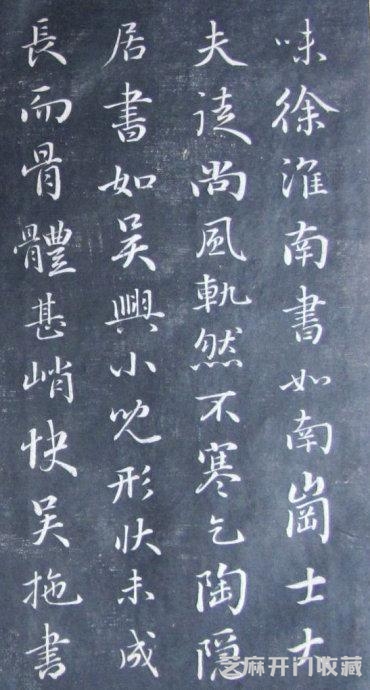 味徐淮南書如南崗士大
夫徒尚風軌然不寒乞陶隱
居書如吳興小兒形狀未成
長而骨體甚峭快吳拖書
芝麻开门收藏